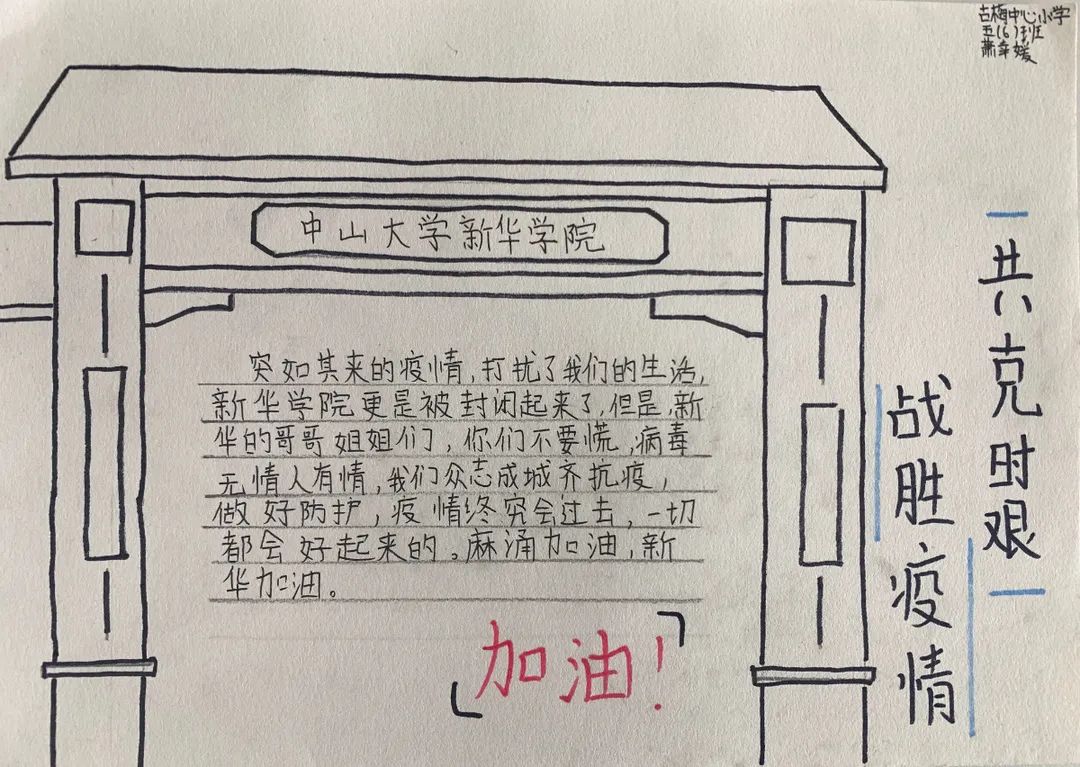 古梅中心小学
五(6)班
萧幸媛
中山大学新华学院
突如其来的疫情,打扰了我们的生活,
新华学院更是被封闭起来了,但是,新
华的哥哥姐姐们,你们不要慌,病毒
无情人有情,我们众志成城齐抗疫,
做好防护,疫情终究会过去,一切
都会好起来的。麻涌加油,新
华加油。
加油!
共克时艰
战胜疫情